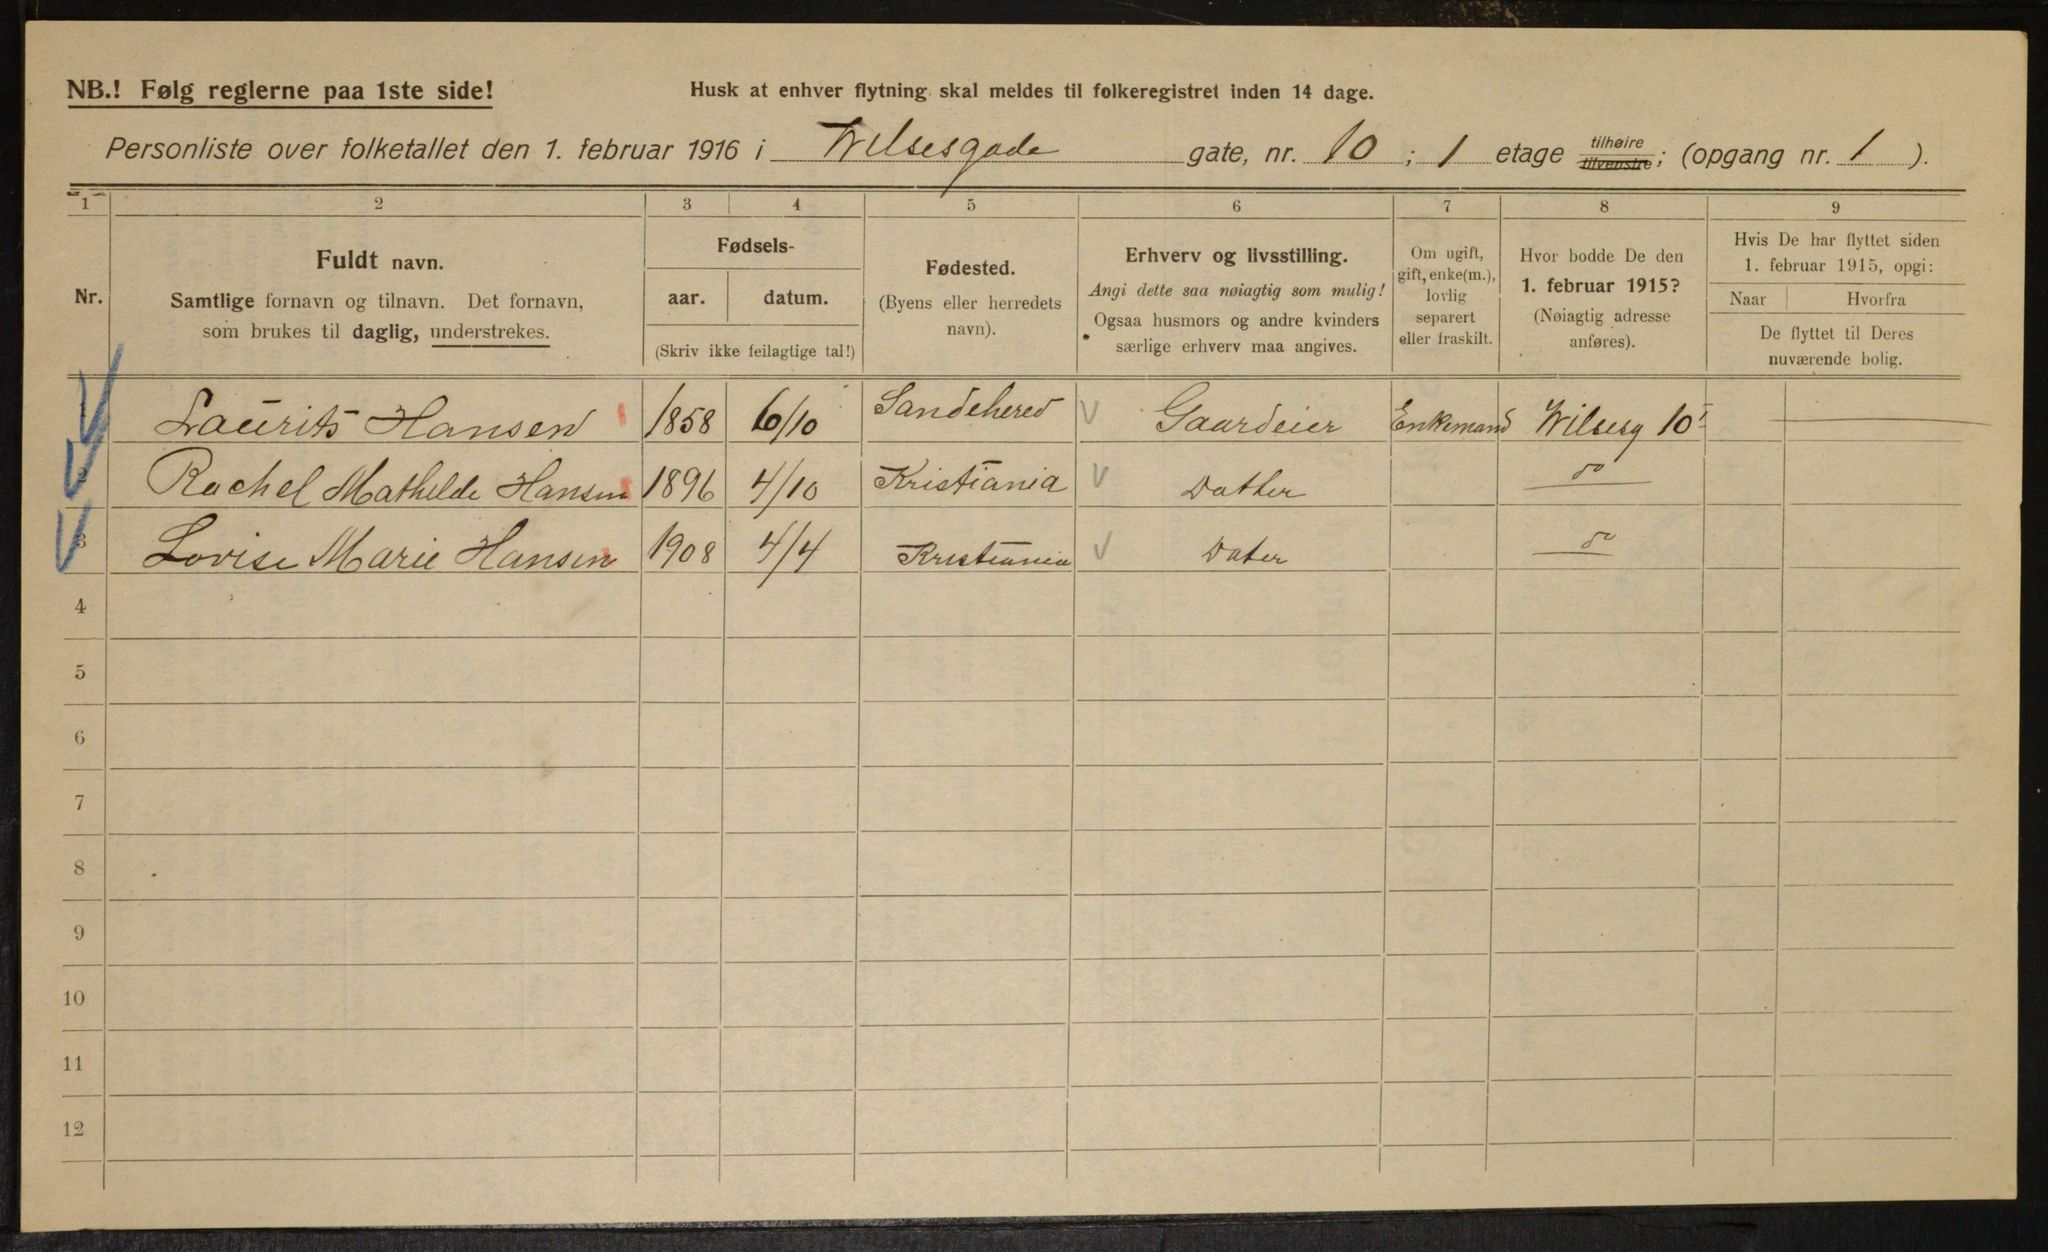 NB.! Følg reglerne paa 1ste side!
Husk at enhver flytning skal meldes til folkeregistret inden 14 dage.
Personliste over folketallet den 1. februar 1916 i Wilsesgade gate, nr. 10 ; 1 etage tilhøire tilvenstre; (opgang nr. 1 ).
1 2 3 4 5 6 7 8 9
Nr.
Fuldt navn.
Samtlige fornavn og tilnavn. Det fornavn,
som brukes til daglig, understrekes.
Fødsels-
aar. datum.
(Skriv ikke feilagtige tal!)
Fødested.
(Byens eller herredets
navn).
Erhverv og livsstilling.
Angi dette saa nøiagtig som mulig!
Ogsaa husmors og andre kvinders
særlige erhverv maa angives.
Om ugift,
gift, enke(m.),
lovlig
separert
eller fraskilt.
Hvor bodde De den
1. februar 1915?
(Nøiagtig adresse
anføres).
Hvis De har flyttet siden
1. februar 1915, opgi:
Naar Hvorfra
De flyttet til Deres
nuværende bolig.
1 Laurits Hansen 1858 6/10 Sandehered Gaardeier Enkemand Wilsesg 10 I
2 Rachel Mathilde Hansen 1896 4/10 Kristiania Datter do
3 Lovise Marie Hansen 1908 4/4 Kristiania Dater do
4
5
6
7
8
9
10
11
12